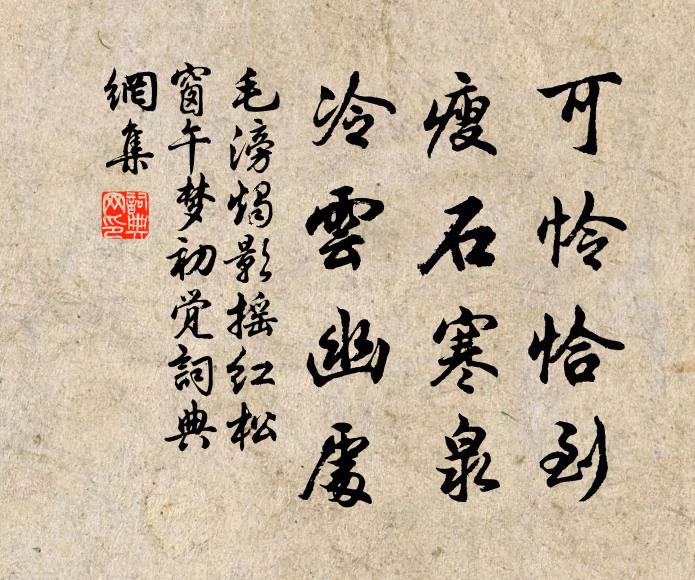 可怜恰到
瘦石寒泉
冷雲幽處
毛滂燭影摇红松
窗午梦初觉詞典
網集
詞典
网印